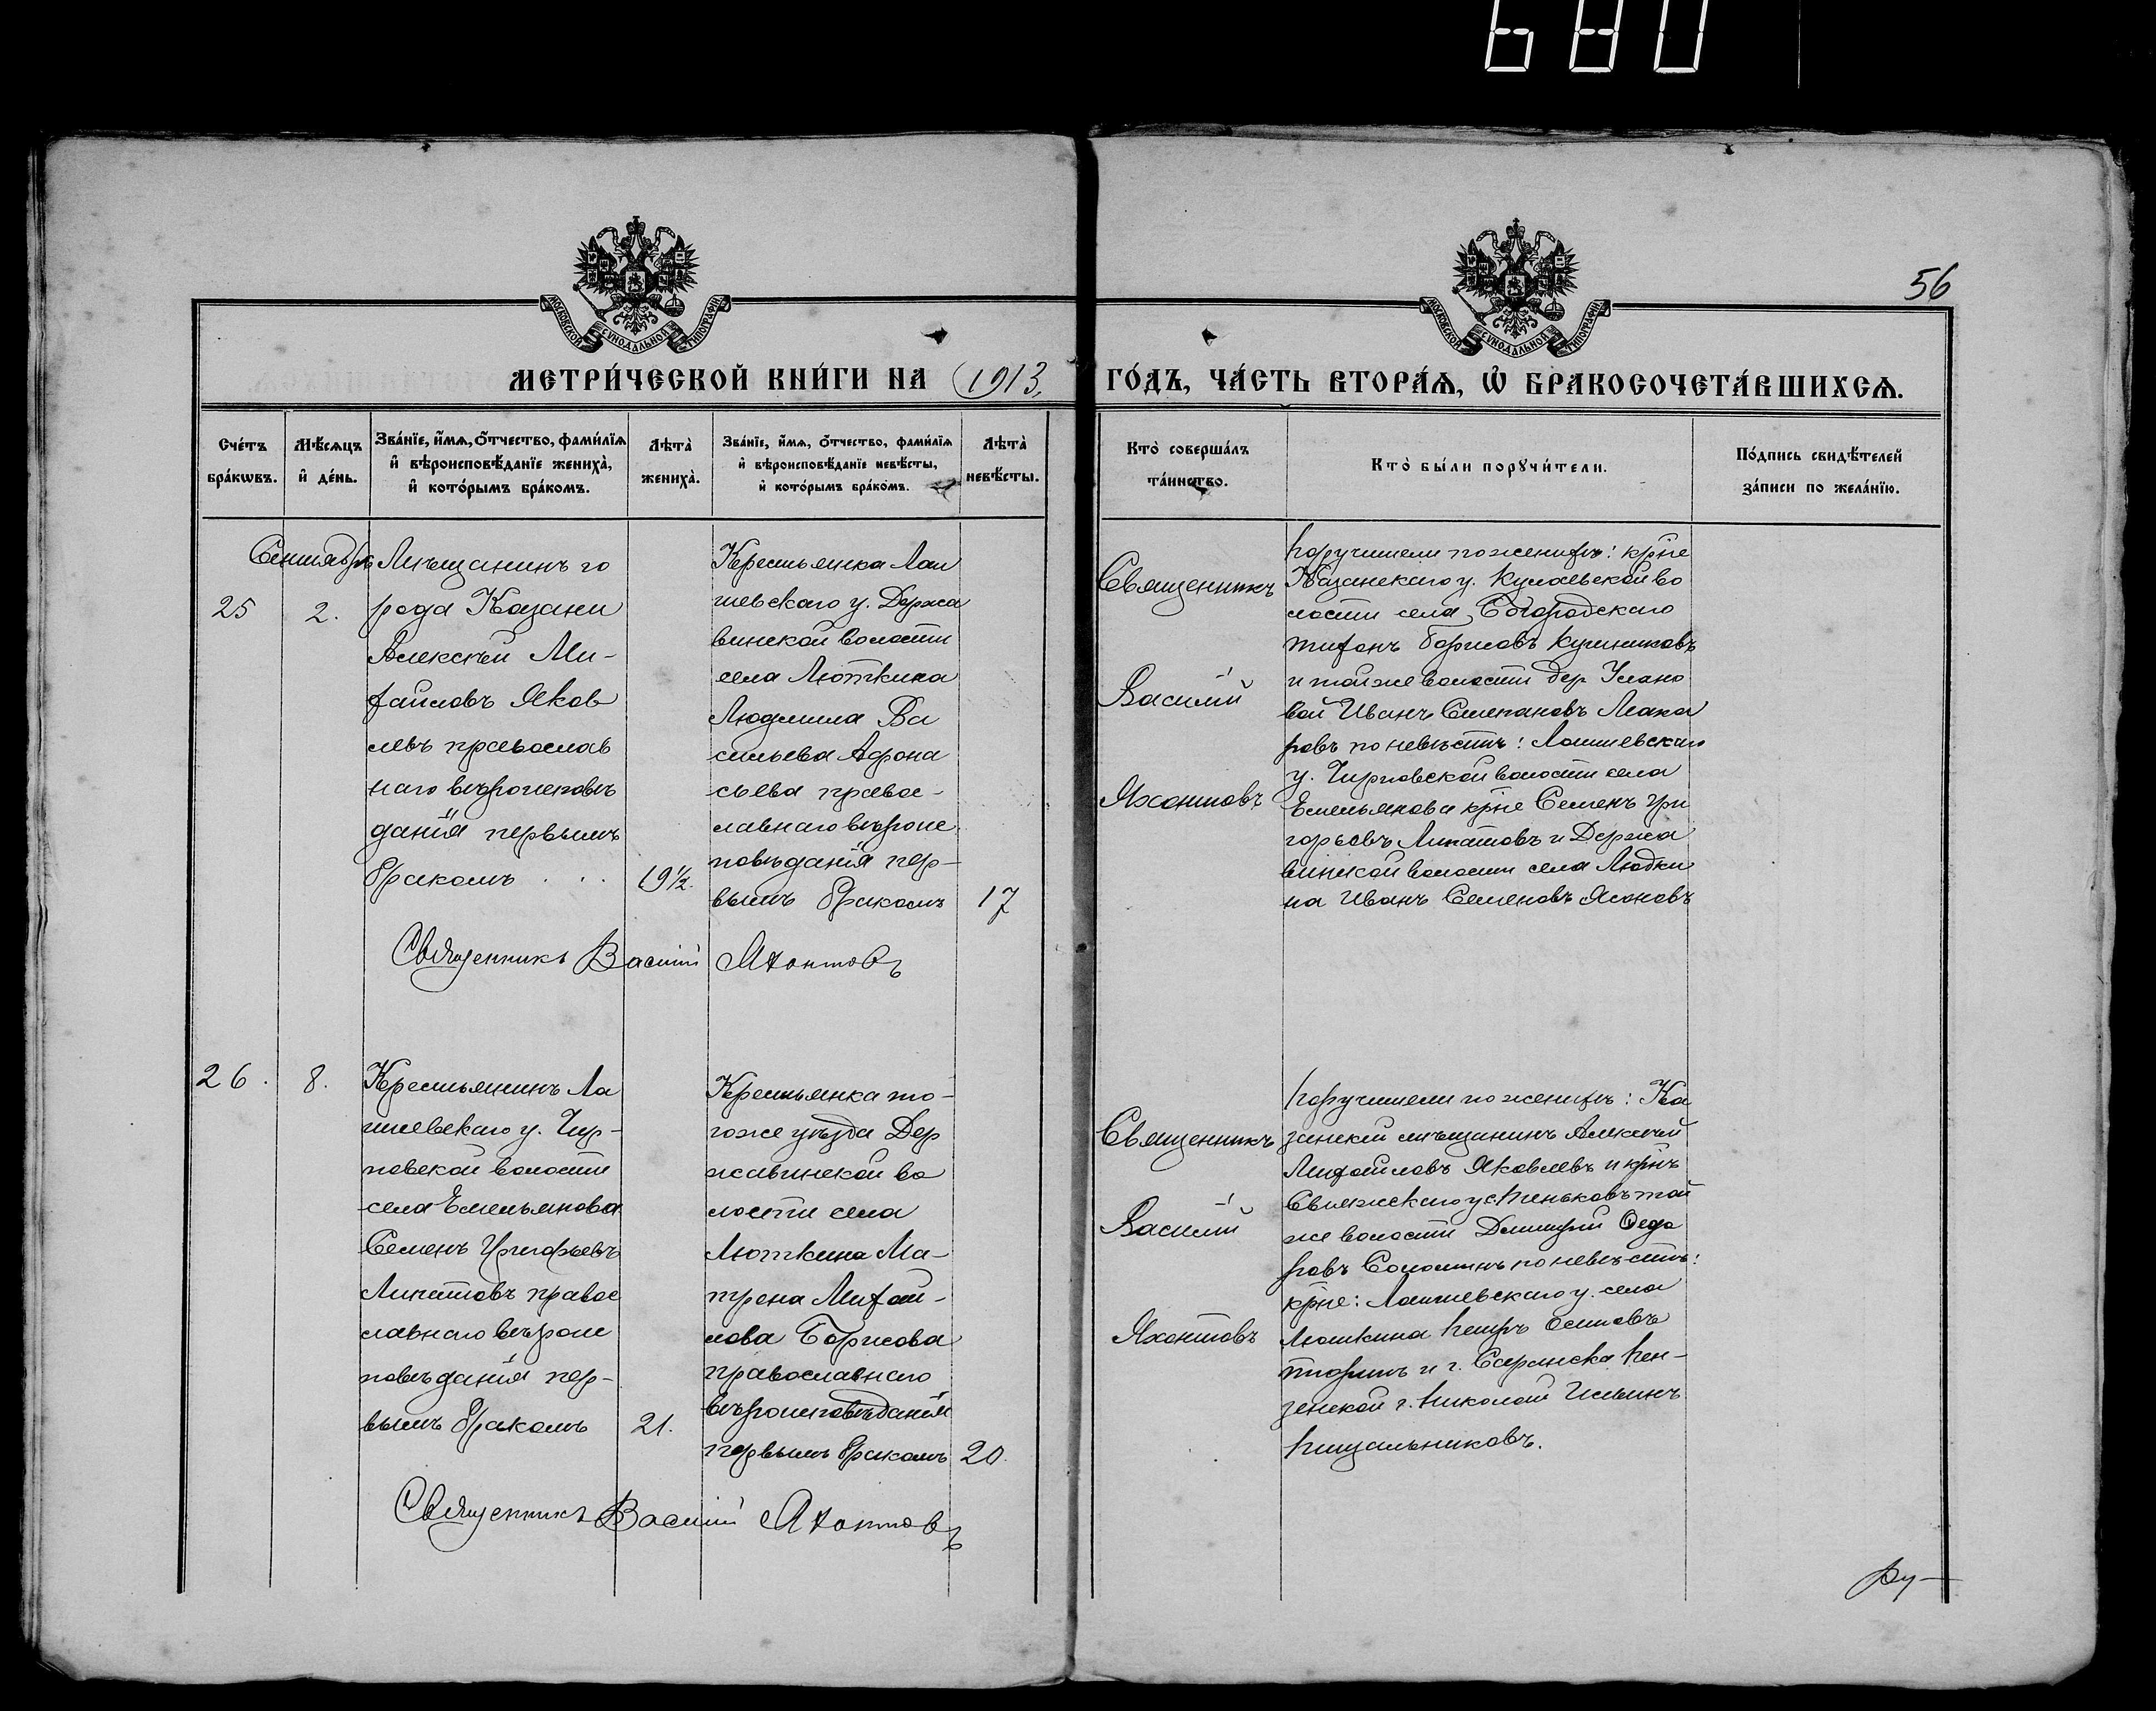 680
56
МОСКОВСКОЙ СѴНОДАЛЬНОЙ ТИПОГРАФІИ
МОСКОВСКОЙ СѴНОДАЛЬНОЙ ТИПОГРАФІИ
МЕТРИ́ЧЕСКОЙ КНИ́ГИ НА 1913. ГО́ДЪ, ЧА́СТЬ ВТОРА́Ѧ, Ѡ҆ БРАКОСОЧЕТА́ВШИХСѦ.
Сче́тъ
бра́кѡвъ.
Мѣ́сѧцъ
и҆ де́нь.
Зва́нїе, и҆́мѧ, ѻ҆́тчество, фами́лїѧ
и҆ вѣроисповѣ́данїе жениха̀,
и҆ кото́рымъ бра́комъ.
Лѣта̀
жениха̀.
Зва́нїе, и҆́мѧ, ѻ҆́тчество, фами́лїѧ
и҆ вѣроисповѣ́данїе невѣ́сты,
и҆ кото́рымъ бра́комъ.
Лѣта̀
невѣ́сты.
Кто̀ соверша́лъ
та́инство.
Кто̀ бы́ли порꙋчи́тели.
По́дпись свидѣ́телей
за́писи по жела́нїю.
25
Сентября
2.
Мѣщанинъ го
рода Казани
Алексѣй Ми-
хаиловъ Яков
левъ православ
наго вѣроисповѣ
данія первымъ
бракомъ . . .
19½.
Крестьянка Лаи
шевскаго у. Держа
винской волости
села Люткина
Людмила Ва
сильева Афона
сьева правос-
лавнаго вѣроис
повѣданія пер-
вымъ бракомъ
17
Священникъ
Василій
Яхонтовъ
Поручители по женихѣ: кр̃не
Казанскаго у. Кулаевской во
лости села Богородскаго
Тихонъ Борисовъ
и той же волости дер
вой Иванъ Степановъ Мака
ровъ по невѣстѣ: Лаишевскаго
у. Чирповской волости села
Емельянова кр̃не Семенъ Гри
горьевъ Липатовъ и Держа
винской волости села Людки
на Иванъ Семеновъ
Священникъ Василій Яхонтовъ
26.
8.
Крестьянинъ Ла
ишевскаго у. Чир-
повской волости
села Емельянова
Семенъ Григорьевъ
Липатовъ правос
лавнаго вѣроис
повѣданія пер-
вымъ бракомъ
21.
Крестьянка то-
гоже уѣзда Дер
жавинской во
лости села
Люткина Ма-
трена Михаи-
лова Борисова
православнаго
вѣроисповѣданія
первымъ бракомъ
20.
Священникъ
Василій
Яхонтовъ
Поручители по женихѣ: Ка
занскій мѣщанинъ Алексѣй
Михаиловъ Яковлевъ и кр̃нъ
Свіяжскаго у с. Пеньковъ той
же волости Димитрій Федо
ровъ по невѣстѣ:
кр̃не: Лаишевскаго у. села
Люткина Петръ Осиповъ
и г. Саранска Пен-
зенской г. Николай Ильинъ
Пищальниковъ.
Священникъ Василій Яхонтовъ